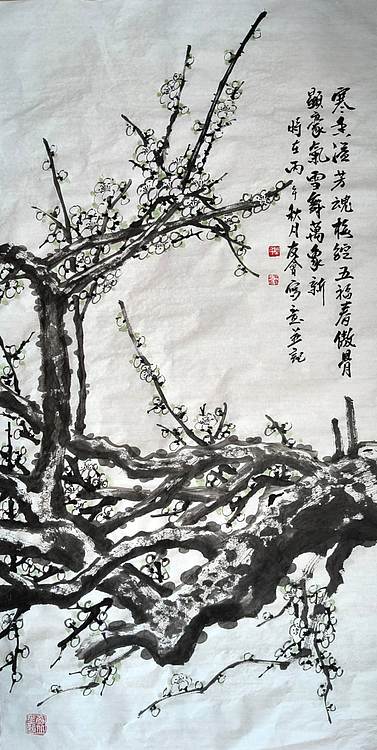 寒冬溢芳魂梅綻五福春傲骨
顯豪氣雪舞萬象新
時在丙午秋月友寫意並記